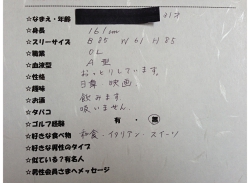 ☆なまえ・年齢 才
☆身長 161cm
☆スリーサイズ B85 W61 H85
☆職業 OL
☆血液型 A型
☆性格 おっとりしています。
☆趣味 日舞 映画
☆お酒 飲みます
☆タバコ 吸いません
☆ゴルフ経験 有・無
☆好きな食べ物 和食・イタリアン・スイーツ
☆好きな男性のタイプ
☆似ている？有名人
☆男性会員さまへメッセージ